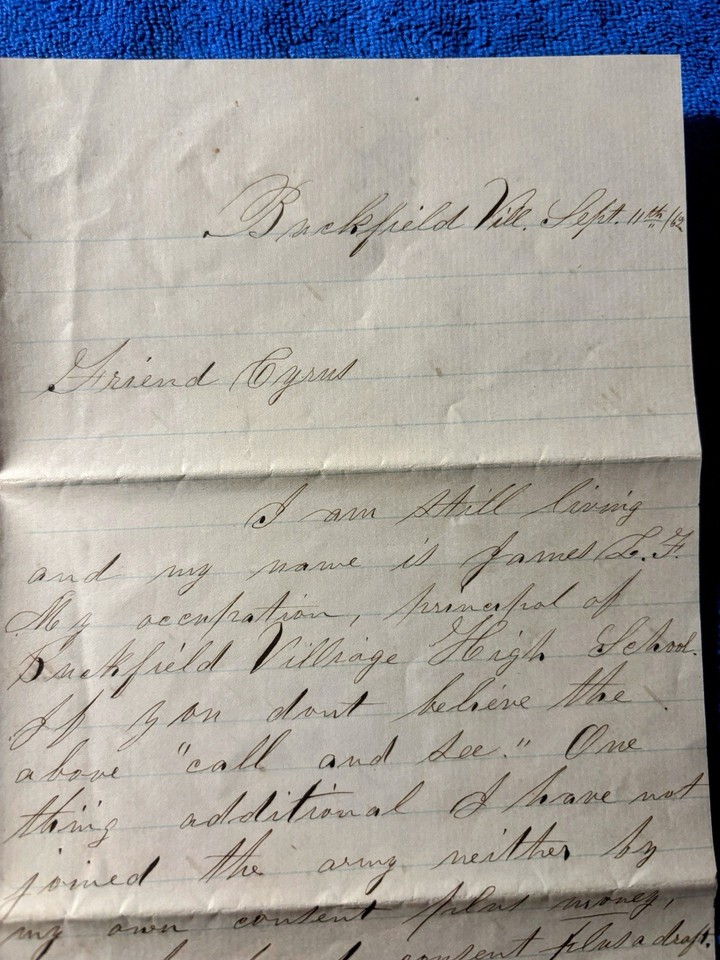 Buckfield Vill. Sept. 11th/62
Friend Cyrus
I am still living
and my name is James L. F.
My occupation, principal of
Buckfield Villiage High School.
If you dont believe the
above "call and see." One
thing additional I have not
joined the army neither by
my own consent plus money,
consent plus a draft.